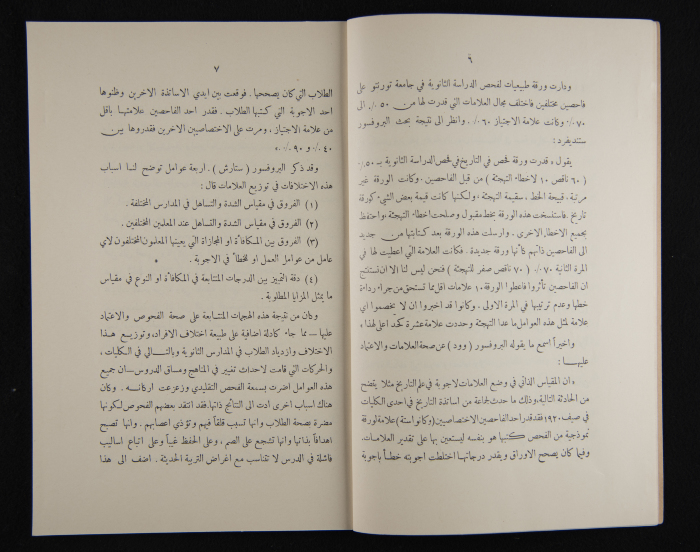 ٦
ودارت ورقة طبيعيات لفحص الدراسة الثانوية في جامعة تورنتو على
فاحصين مختلفين فاختلف مجال العلامات التي قدرت لها من ٥٠٪ الى
٧٠٪ وكانت علامة الاجتياز ٦٠٪ . وانظر الى نتيجة بحث البروفسور
ستديفرد :
يقول ، قدرت ورقة فحص في التاريخ في فحص الدراسة الثانوية بـ ٥٠٪
( ٦٠ ناقص ١٠ لاخطاء التهجئة ) من قبل الفاحصين . وكانت الورقة غير
مرتبة ، قبيحة الخط ، سقيمة التهجئة ، ولكنها كانت قيمة بعض الشيء كورقة
تاريخ . فاستنسخت هذه الورقة بخط مقبول وصلحت اخطاء التهجئة ، واحتفظ
بجميع الاخطاء الاخرى . وارسلت هذه الورقة بعد كتابتها من جديد
الى الفاحصين ذاتهم كأنها ورقة جديدة . فكانت العلامة التي اعطيت لها في
المرة الثانية ٧٠٪ ( ٧٠ ناقص صفر للتهجئة ) فنحن ليس لنا الا ان نستنتج
ان الفاحصين تأثروا فاعطوا الورقة ١٠ علامات اقل مما تستحق من جراء رداءة
خطها وعدم ترتيبها في المرة الاولى . وكانوا قد اخبروا ان لا يخصموا اي
علامة لمثل هذه العوامل ما عدا التهجئة وحددت علامة عشرة كحد اعلى لهذا ،
واخيراً اسمع ما يقوله البروفسور ( وود ) عن صحة العلامات والاعتماد
عليها :
« ان المقياس الذاتي في وضع العلامات لاجوبة في علم التاريخ مثلا يتضح
من الحادثة التالية ، وذلك ما حدث لجماعة من اساتذة التاريخ في احدى الكليات
في صيف ١٩٢٠ فقد قدر احد الفاحصين الاختصاصيين ( وكانوا ستة ) علامة لورقة
نموذجية من الفحص كتبها هو بنفسه ليستعين بها على تقدير العلامات .
وفيما كان يصحح الاوراق ويقدر درجاتها اختلطت اجوبته خطأ باجوبة
٧
الطلاب التي كان يصححها . فوقعت بين ايدي الاساتذة الاخرين وظنوها
احد الاجوبة التي كتبها الطلاب . فقدر احد الفاحصين علامتها باقل
من علامة الاجتياز ، ومرت على الاختصاصيين الاخرين فقدروها بين
٤٠٪ و ٩٠٪ »
وقد ذكر البروفسور ( ستارش ) . اربعة عوامل توضح لنا اسباب
هذه الاختلافات في توزيع العلامات قال :
( ١ ) الفروق في مقياس الشدة والتساهل في المدارس المختلفة .
( ٢ ) الفروق في مقياس الشدة والتساهل عند المعلمين المختلفين .
( ٣ ) الفروق بين المكافأة او المجازاة التي يعينها المعلمون المختلفون لاي
عامل من عوامل العمل او للاخطاء في الاجوبة .
( ٤ ) دقة التمييز بين الدرجات المتتابعة في المكافأة او النوع في مقياس
ما يمثل المزايا المطلوبة .
وكان من نتيجة هذه الهجمات المتتابعة على صحة الفحوص والاعتماد
عليها — مما جاء كأدلة اضافية على طبيعة اختلاف الافراد ، وتوزيع هذا
الاختلاف وازدياد الطلاب في المدارس الثانوية وبالتالي في الكليات ،
والحركات التي قامت لاحداث تغيير في المناهج ومساق الدروس — ان جميع
هذه العوامل اضرت بسمعة الفحص التقليدي وزعزعت اركانه . وكان
هناك اسباب اخرى ادت الى النتائج ذاتها . فقد انتقد بعضهم الفحوص لكونها
مضرة بصحة الطلاب وانها تسبب قلقاً فيهم وتؤذي اعصابهم . وانها تصبح
اهدافاً بذاتها وانها تشجع على الصم ، وعلى الحفظ غيباً وعلى اتباع اساليب
فاشلة في الدرس لا تتناسب مع اغراض التربية الحديثة . اضف الى هذا